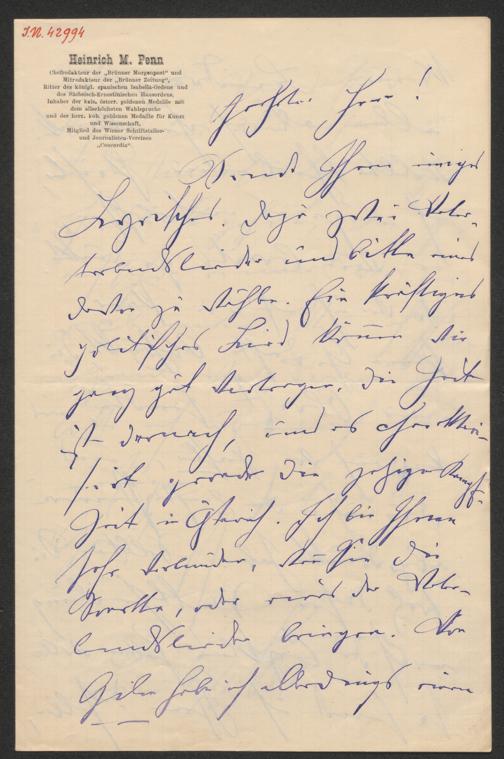 I.N. 42994
Heinrich M. Penn
Chefredakteur der „Brünner Morgenpost“ und
Mitredakteur der „Brünner Zeitung“,
Ritter des königl. spanischen Isabella-Ordens und
des Sächsisch-Ernestinischen Hausordens,
Inhaber der kais. österr. goldenen Medaille mit
dem allerhöchsten Wahlspruche
und der herz. kob. goldenen Medaille für Kunst
und Wissenschaft,
Mitglied des Wiener Schriftsteller-
und Journalisten-Vereines
„Concordia“.
Geehrter Herr!
Sende Ihnen einiges
Lyrisches. Dazu zwei Vater-
landslieder und bitte eines
davon zu wählen. Ein kräftiges
politisches Lied können Sie
ganz gut vertragen, die Zeit
ist darnach, und es charakteri-
sirt gerade die jetzige Kampf-
Zeit in Österreich. Ich bin Ihnen
sehr verbunden, wenn Sie die
oder eines der Vater-
landslieder bringen. Von
habe ich allerdings einen